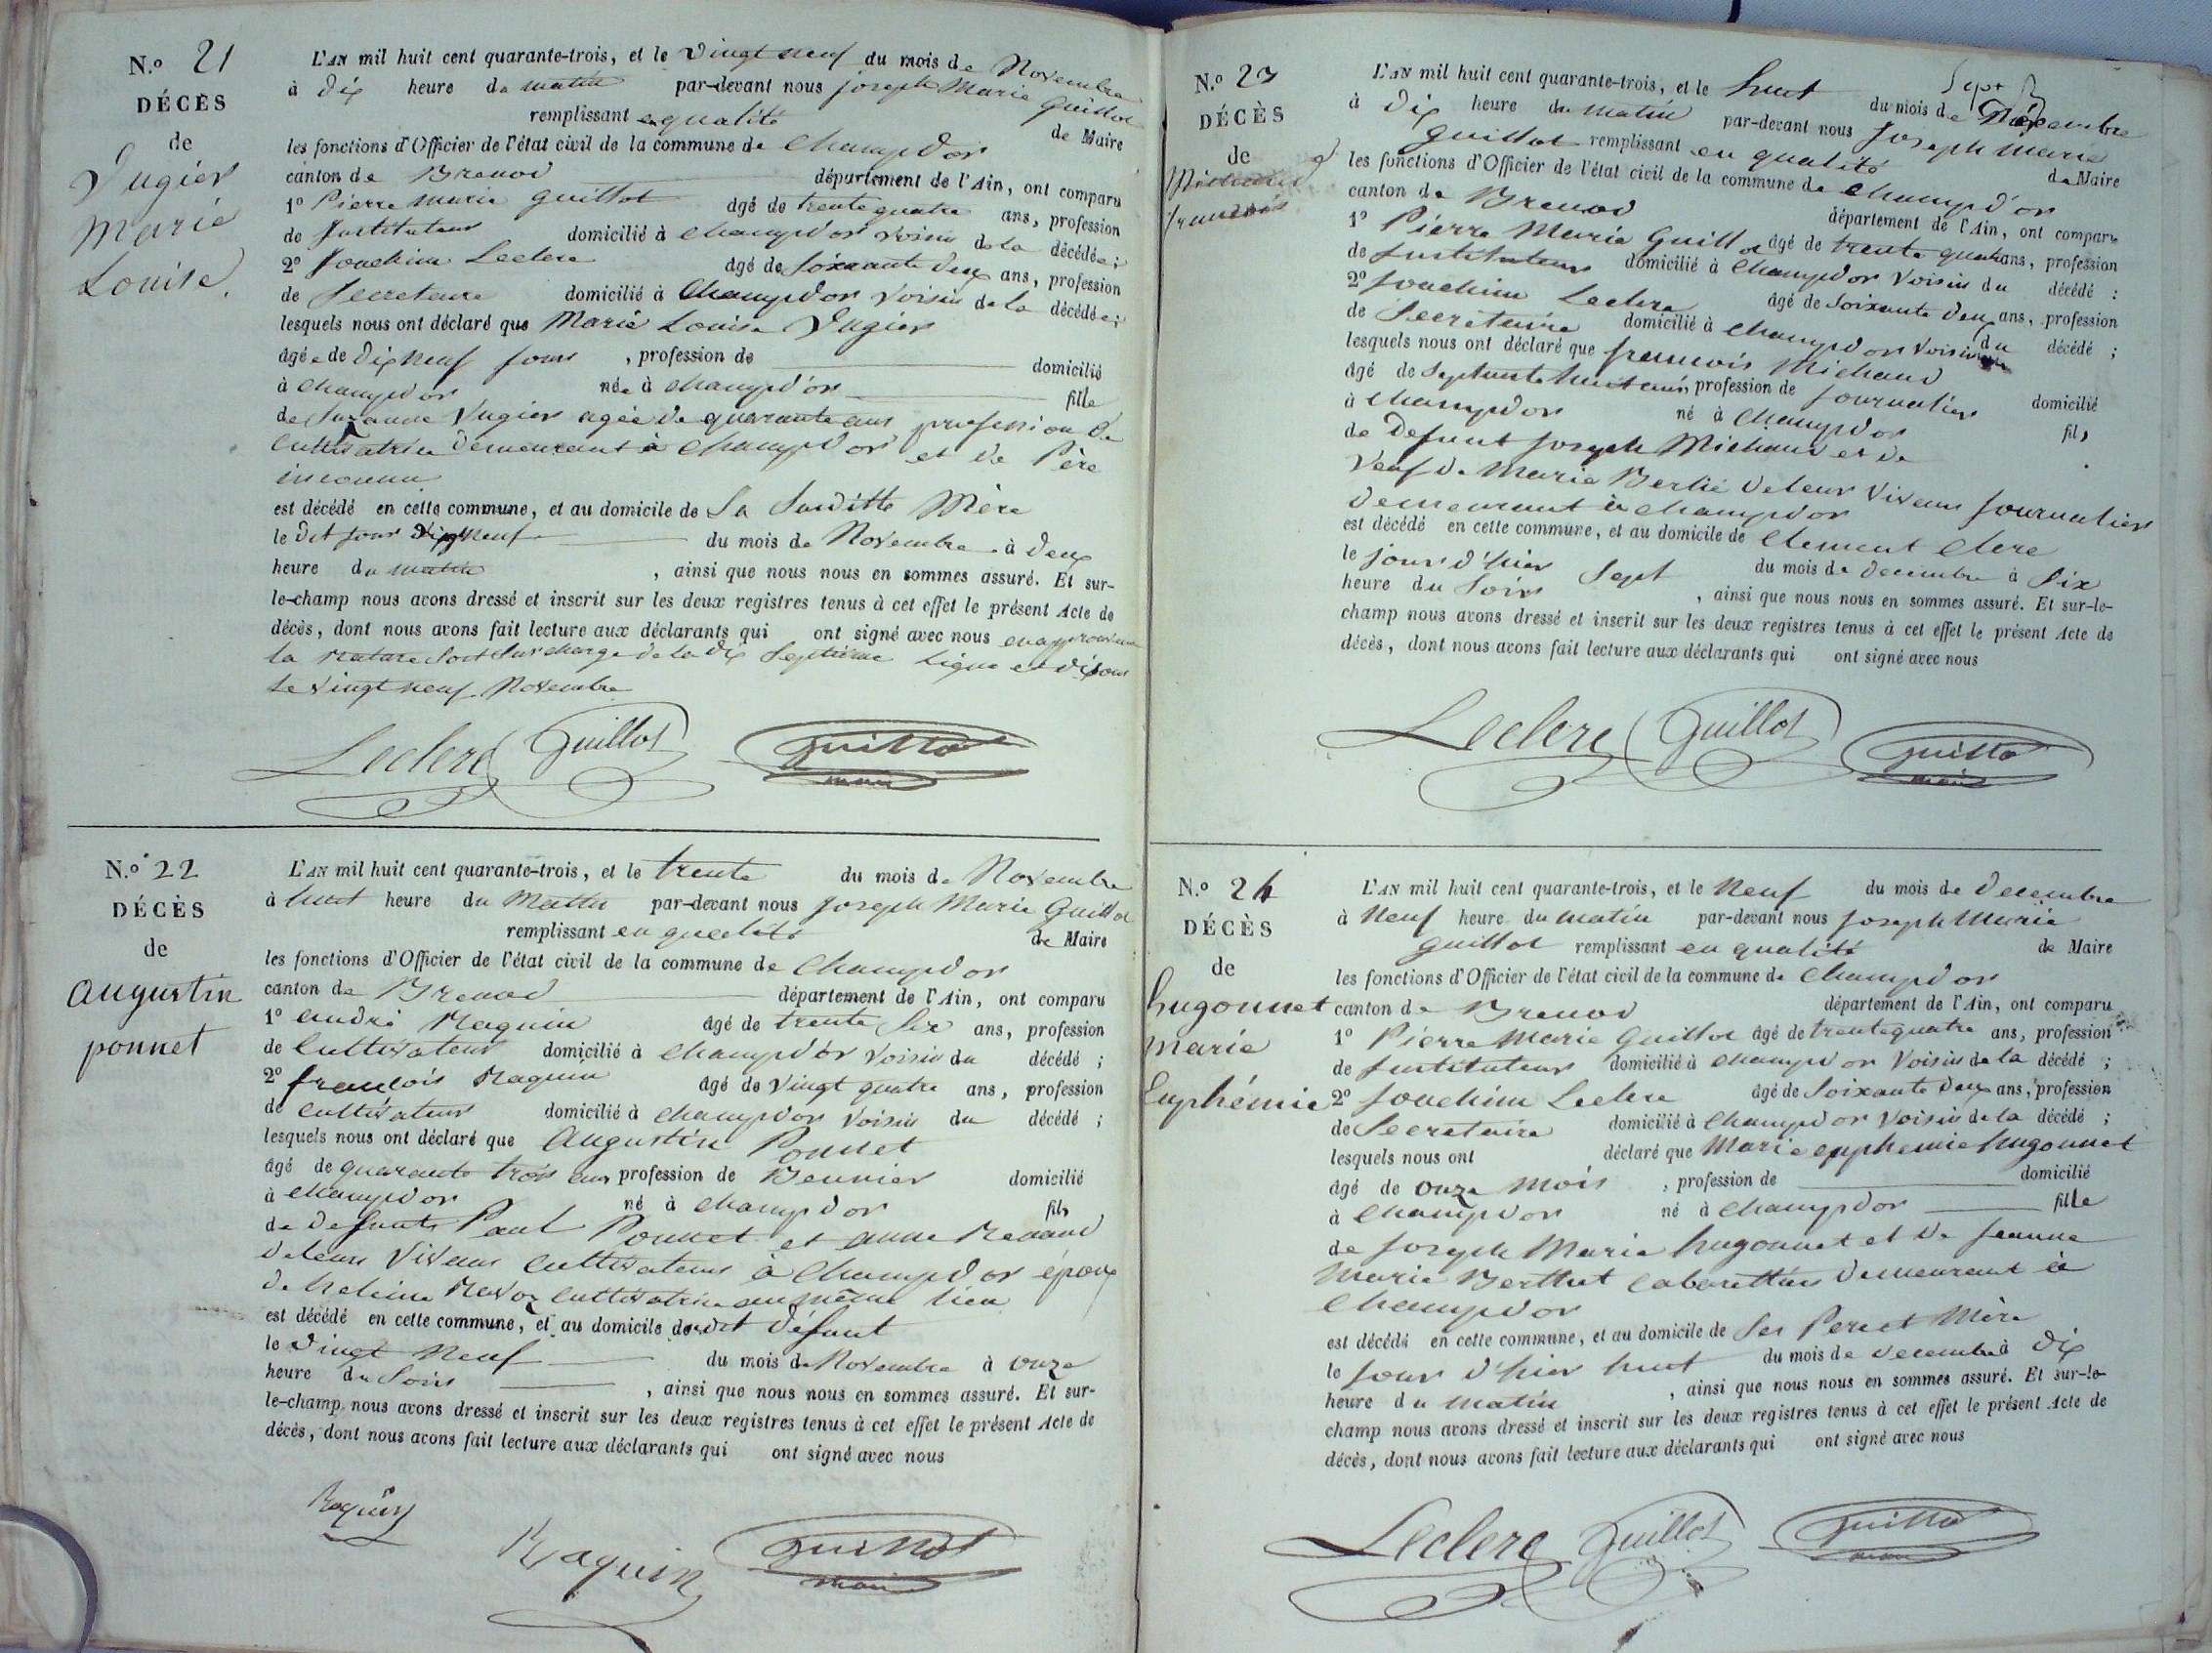 N.o 21
DÉCÈS
de
Vugier
Marie
Louise.
L'AN mil huit cent quarante-trois, et le vingt neuf du mois de Novembre
à dix heure du matin par-devant nous joseph Marie Guillot
remplissant en qualité de Maire
les fonctions d'Officier de l'état civil de la commune de Champdor
canton de Brenod département de l'Ain, ont comparu
1o Pierre marie Guillot âgé de trente quatre ans, profession
de Instituteur domicilié à Champdor voisin de la décédée;
2o Joachim Leclerc âgé de Soixante deux ans, profession
de Secretaire domicilié à Champdor voisin de la décédée;
lesquels nous ont déclaré que Marie Louise Vugier
âgée de dix neuf jours , profession de domicilié
à Champdor née à Champdor fille
de Suzanne Vugier agée de quarante ans profession de
Cultivatrice demeurant à Champdor et de Père
inconnu
est décédé en cette commune, et au domicile de Sa Susditte Mère
le dit jour neuf du mois de Novembre à deux
heure du matin , ainsi que nous nous en sommes assuré. Et sur-
le-champ nous avons dressé et inscrit sur les deux registres tenus à cet effet le présent Acte de
décès, dont nous avons fait lecture aux déclarants qui ont signé avec nous en approuvant
la rature Surcharge de la dix Septieme ligne et disons
le vingt neuf Novembre
Leclerc Guillot Guillot
maire
N.o 22
DÉCÈS
de
Augustin
ponnet
L'AN mil huit cent quarante-trois, et le trente du mois de Novembre
à huit heure du Matin par-devant nous joseph Marie Guillot
remplissant en qualité de Maire
les fonctions d'Officier de l'état civil de la commune de Champdor
canton de Brenod département de l'Ain, ont comparu
1o andré Raquin âgé de trente Six ans, profession
de Cultivateur domicilié à Champdor voisin du décédé ;
2o françois Raquin âgé de vingt quatre ans, profession
de Cultivateur domicilié à Champdor voisin du décédé ;
lesquels nous ont déclaré que Augustin Ponnet
âgé de quarante trois ans profession de domicilié
à Champdor né à Champdor fils
de defunts Paul Ponnet et anne Renaud
de leurs vivans Cultivateurs à Champdor époux
de Cultivatrice au même lieu
est décédé en cette commune, et au domicile du dit défunt
le vingt Neuf du mois de Novembre à onze
heure du Soir , ainsi que nous nous en sommes assuré. Et sur-
le-champ nous avons dressé et inscrit sur les deux registres tenus à cet effet le présent Acte de
décès, dont nous avons fait lecture aux déclarants qui ont signé avec nous
Raquin Raquin Guillot
maire
N.o 23
DÉCÈS
de
Michaud
françois
L'AN mil huit cent quarante-trois, et le huit du mois de Decembre
à dix heure du matin par-devant nous Joseph Marie
Guillot remplissant en qualité de Maire
les fonctions d'Officier de l'état civil de la commune de Champd'or
canton de Brenod département de l'Ain, ont comparu
1o Pierre Marie Guillot âgé de trente quatre ans, profession
de Instituteur domicilié à Champdor voisin du décédé :
2o Joachim Leclerc âgé de Soixante deux ans, profession
de Secretaire domicilié à Champdor voisin du décédé ;
lesquels nous ont déclaré que françois Michaud
âgé de Septante huit ans, profession de journalier domicilié
à Champdor né à Champdor fils
de defunt joseph Michaud et de
Veuf de Marie Berlié de leur vivans journaliers
demeurant à Champdor
est décédé en cette commune, et au domicile de Clement Clerc
le jour d'hier Sept du mois de decembre à Six
heure du Soir , ainsi que nous nous en sommes assuré. Et sur-le-
champ nous avons dressé et inscrit sur les deux registres tenus à cet effet le présent Acte de
décès, dont nous avons fait lecture aux déclarants qui ont signé avec nous
Leclerc Guillot Guillot
maire
N.o 24
DÉCÈS
de
hugonnet
Marie
Euphémie
L'AN mil huit cent quarante-trois, et le Neuf du mois de decembre
à Neuf heure du matin par-devant nous joseph Marie
Guillot remplissant en qualité de Maire
les fonctions d'Officier de l'état civil de la commune de Champdor
canton de Brenod département de l'Ain, ont comparu
1o Pierre Marie Guillot âgé de trente quatre ans, profession
de Instituteur domicilié à Champdor voisin de la décédé ;
2o Joachim Leclerc âgé de Soixante deux ans, profession
de Secretaire domicilié à Champdor voisin de la décédé ;
lesquels nous ont déclaré que Marie epphemie hugonnet
âgé de onze Mois , profession de domicilié
à Champdor né à Champdor fille
de joseph Marie hugonnet et de jeanne
Marie Berthet Cabarettiers demeurant à
Champdor
est décédé en cette commune, et au domicile de Ses Pere et Mère
le jour d'hier huit du mois de decembre à dix
heure du matin , ainsi que nous nous en sommes assuré. Et sur-le-
champ nous avons dressé et inscrit sur les deux registres tenus à cet effet le présent Acte de
décès, dont nous avons fait lecture aux déclarants qui ont signé avec nous
Leclerc Guillot Guillot
maire